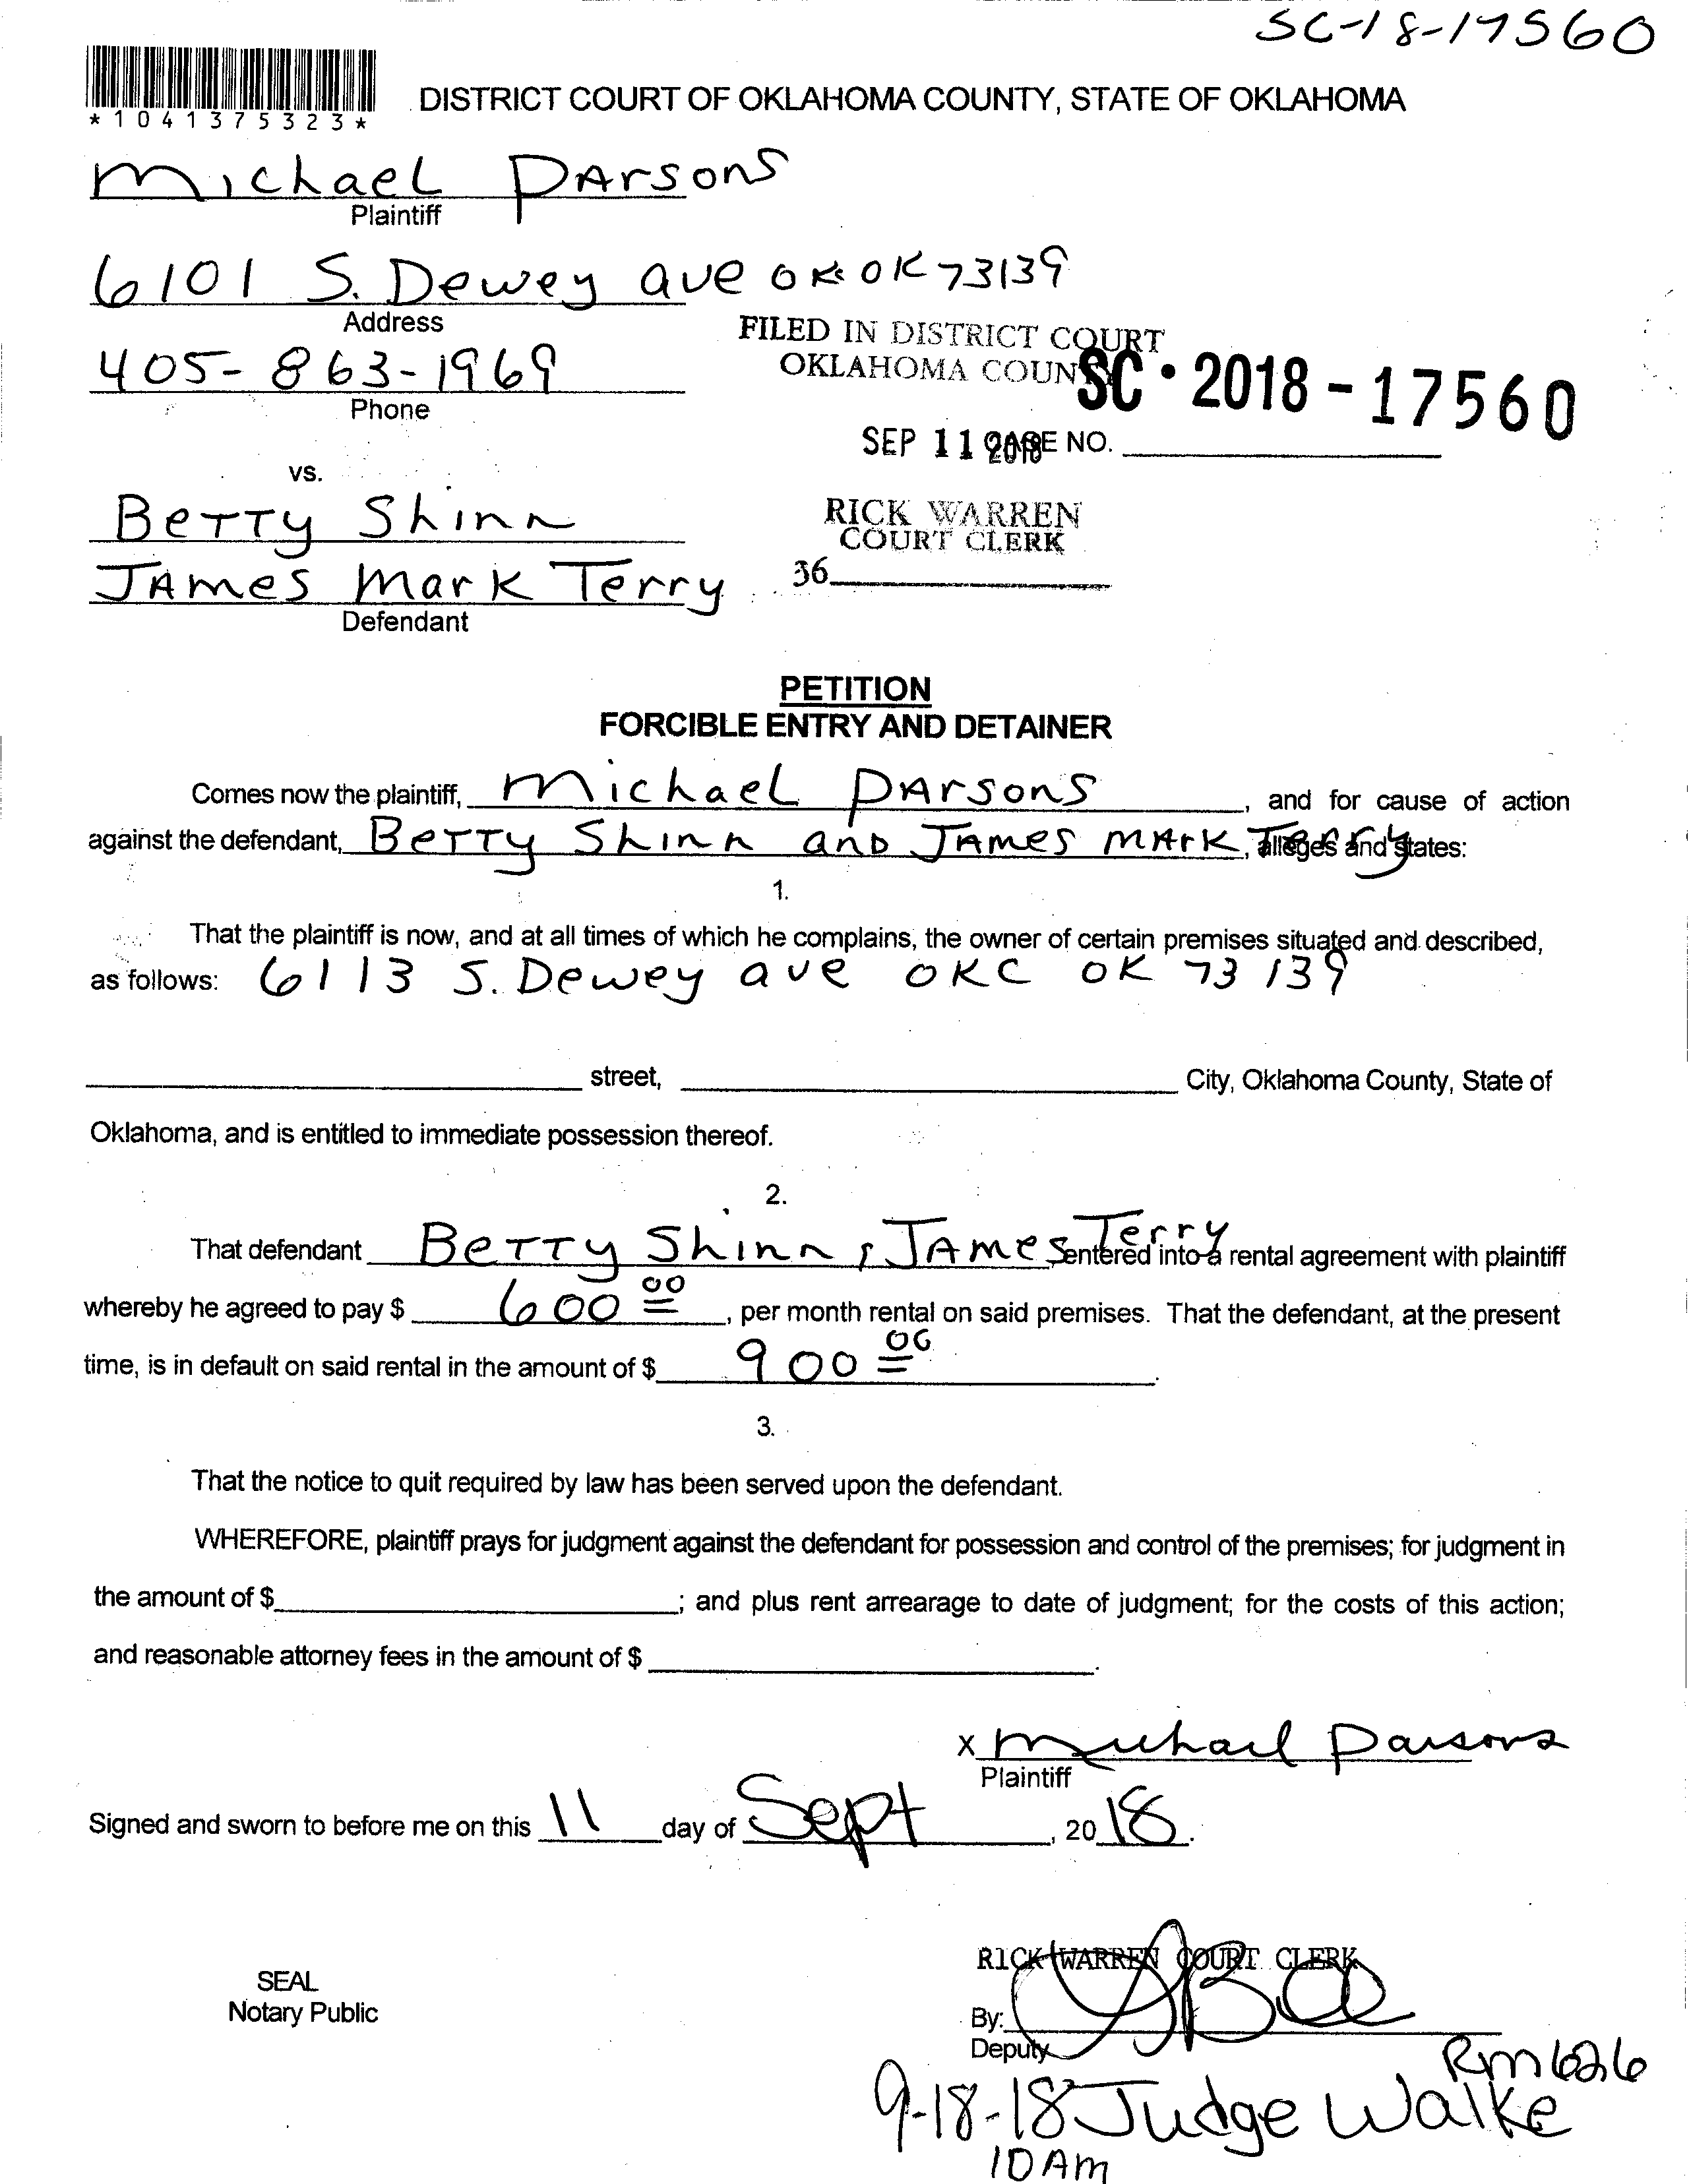 SC-18-17560
*1041375323*
DISTRICT COURT OF OKLAHOMA COUNTY, STATE OF OKLAHOMA
Michael Parsons
Plaintiff
6101 S. Dewey ave OK 73139
Address
FILED IN DISTRICT COURT
OKLAHOMA COUNTY
SC • 2018 - 17560
405-863-1969
Phone
SEP 11 2018
CASE NO.
vs.
Betty Shinn
RICK WARREN
COURT CLERK
James Mark Terry
36
Defendant
PETITION
FORCIBLE ENTRY AND DETAINER
Comes now the plaintiff, Michael Parsons, and for cause of action
against the defendant, Betty Shinn and James Mark Terry, alleges and states:
1.
That the plaintiff is now, and at all times of which he complains, the owner of certain premises situated and described,
as follows: 6113 S. Dewey ave OKC OK 73139
street, City, Oklahoma County, State of
Oklahoma, and is entitled to immediate possession thereof.
2.
That defendant Betty Shinn, James Terry entered into a rental agreement with plaintiff
whereby he agreed to pay $ 600 00, per month rental on said premises. That the defendant, at the present
time, is in default on said rental in the amount of $ 900 00.
3.
That the notice to quit required by law has been served upon the defendant.
WHEREFORE, plaintiff prays for judgment against the defendant for possession and control of the premises; for judgment in
the amount of $ ; and plus rent arrearage to date of judgment; for the costs of this action;
and reasonable attorney fees in the amount of $ .
X Michael Parsons
Plaintiff
Signed and sworn to before me on this 11 day of Sept, 2018.
RICK WARREN COURT CLERK
SEAL
Notary Public
By:
Deputy
Rm 626
9-18-18 Judge Walke
10 AM